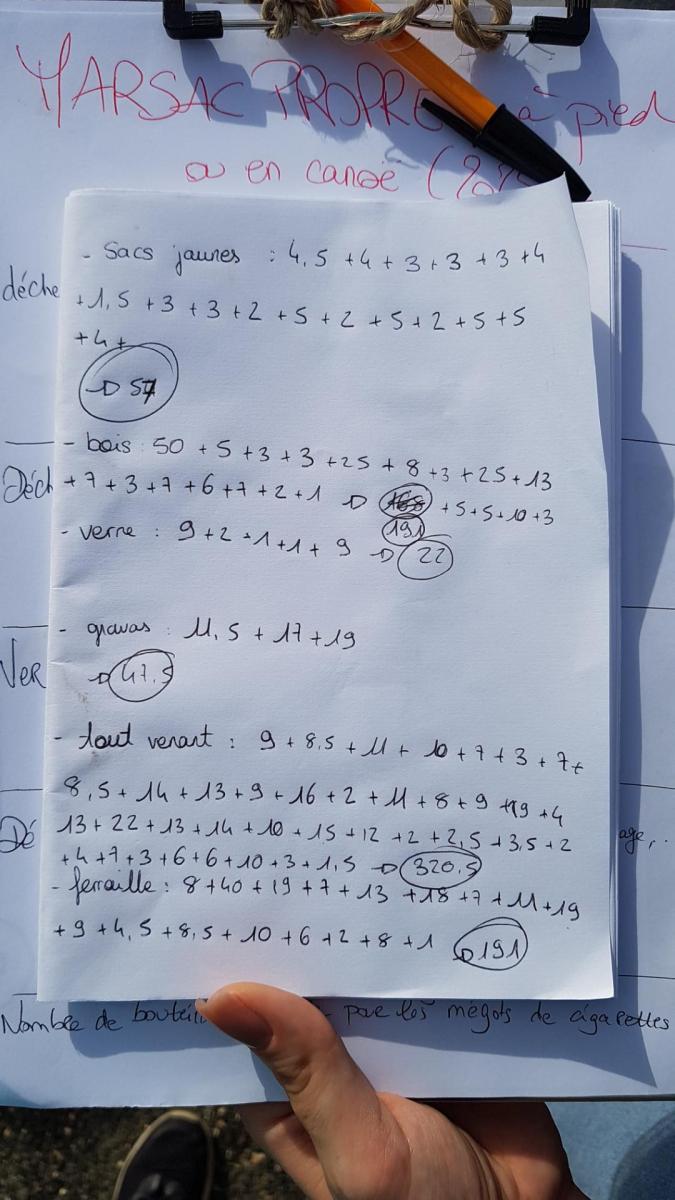 MARSAC PROPRE à pied
ou en canoë (202
déche
- Sacs jaunes : 4,5 +4 + 3 + 3 + 3 + 4
+1,5 + 3 + 3 + 2 + 5 + 2 + 5 + 2 + 5 + 5
+4 +
→ 57
- bois : 50 + 5 + 3 + 3 + 25 + 8 + 3 + 25 + 13
Déch
+ 7 + 3 + 7 + 6 + 7 + 2 + 1 → 168 + 5 + 5 + 10 + 3
191
- verre : 9 + 2 + 1 + 1 + 9 → 22
- gravas : 11,5 + 17 + 19
Ver
→ 47,5
- tout venant : 9 + 8,5 + 11 + 10 + 7 + 3 + 7 +
8,5 + 14 + 13 + 9 + 16 + 2 + 11 + 8 + 9 + 19 + 4
Dé
13 + 22 + 13 + 14 + 10 + 15 + 12 + 2 + 2,5 + 3,5 + 2
age,..
+ 4 + 7 + 3 + 6 + 6 + 10 + 3 + 1,5 → 320,5
- ferraille : 8 + 40 + 19 + 7 + 13 + 18 + 7 + 11 + 19
+ 9 + 4,5 + 8,5 + 10 + 6 + 2 + 8 + 1 → 191
Nombre de bouteil
par les mégots de cigarettes